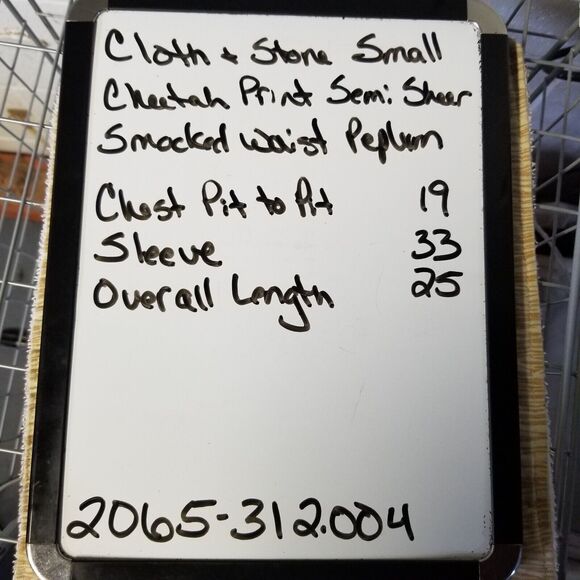 Cloth + Stone Small
Cheetah Print Semi Sheer
Smocked Waist Peplum
Chest Pit to Pit 19
Sleeve 33
Overall Length 25
2065-312.004